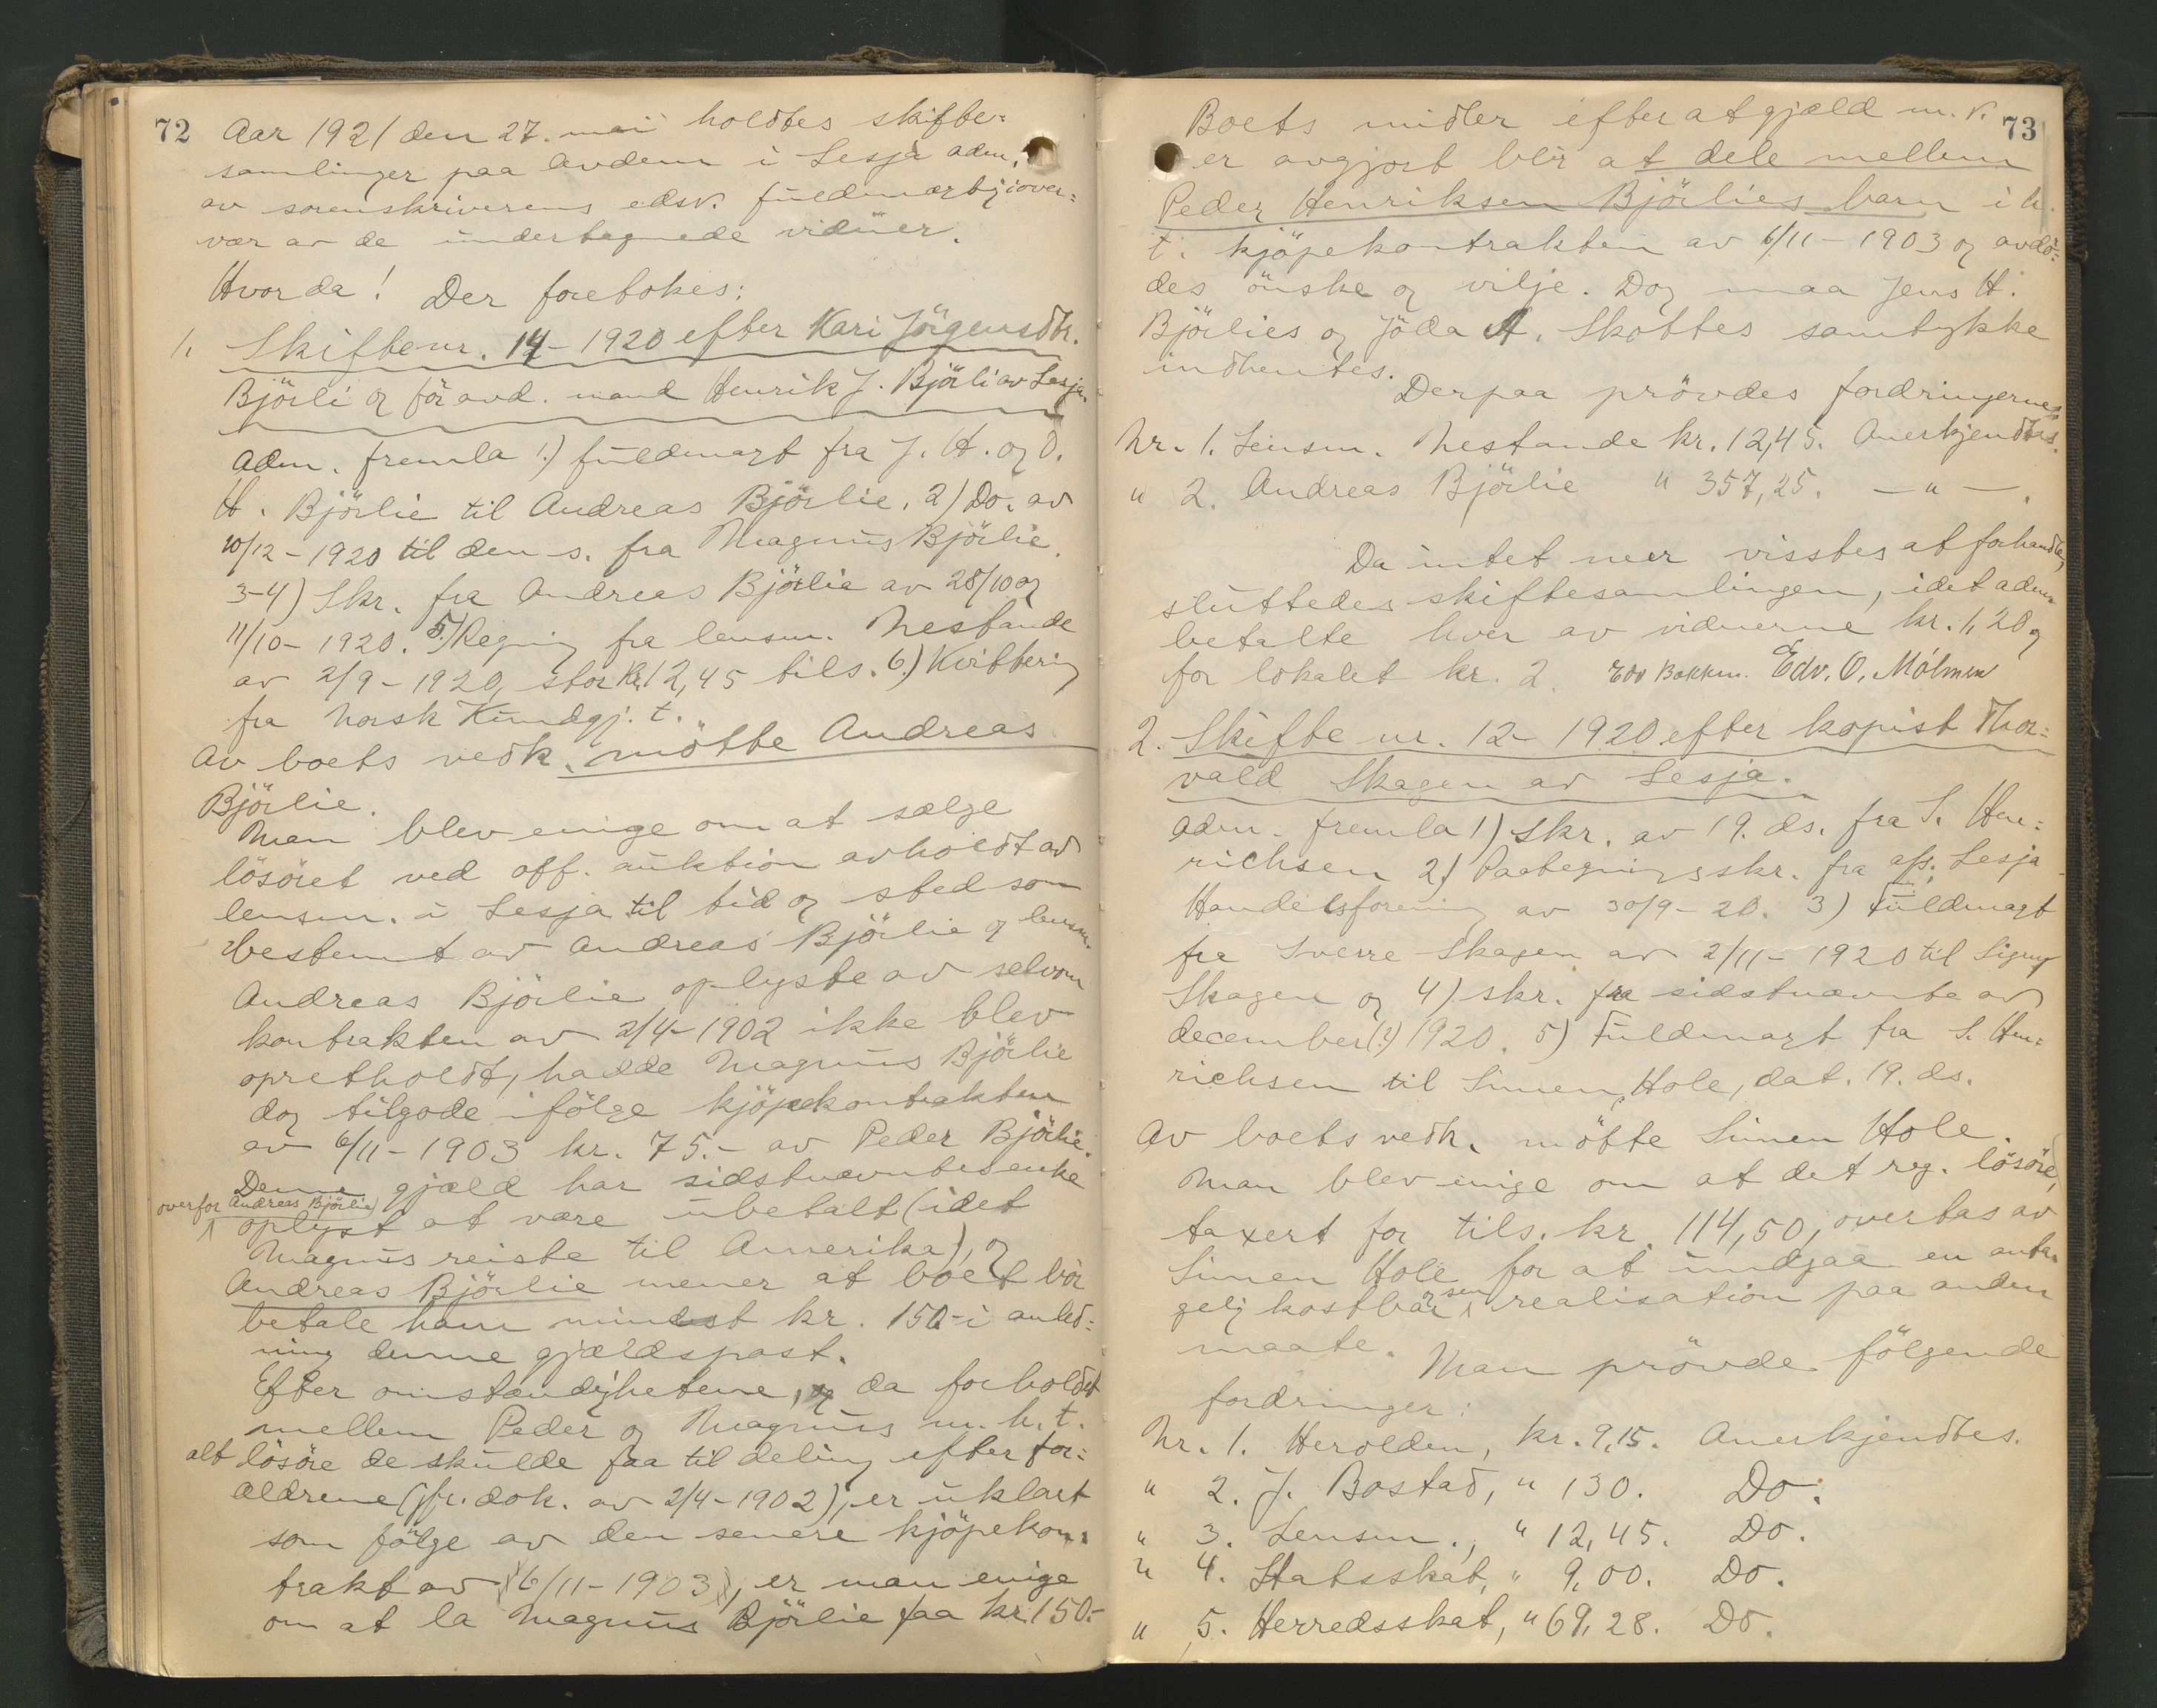 72 Aar 1921 den 27. mai holdtes skifte=
samlinger paa Avdem i Lesja adm.
av sorenskriverens edsv. fuldmægtig i over=
vær av de undertegnede vidner.
Hvorda! Der foretokes:
1. Skiftenr. 14 - 1920 efter Kari Jörgensdtr.
Björli og för avd. mand Henrik J. Björli av Lesja.
Adm. fremla 1.) fuldmagt fra J. H. og O.
H. Björlie til Andreas Björlie. 2) Do. av
10/12 - 1920 til den s. fra Magnus Björlie.
3-4) Skr. fra Andreas Björlie av 28/10 og
11/10 - 1920. 5.) Regning fra lensm. Nestande
av 2/9 - 1920, stor kr. 12,45 tils. 6.) Kvittering
fra Norsk Kundgj. t.
Av boets vedk. mötte Andreas
Björlie.
Man blev enige om at sælge
lösöret ved off. auktion avholdt av
lensm. i Lesja til tid og sted som
bestemt av Andreas Björlie og lensm.
Andreas Björlie oplyste av selvom
kontrakten av 2/4 - 1902 ikke blev
opretholdt, hadde Magnus Björlie
dog tilgode ifölge kjöpekontrakten
av 6/11 - 1903 kr. 75.- av Peder Björlie.
Denne gjæld har sidstnævntes enke
overfor Andreas Björlie
oplyst at være ubetalt (idet
Magnus reiste til Amerika), og
Andreas Björlie mener at boet bör
betale ham mindst kr. 150 - i anled=
ning denne gjældspost.
Efter omstændighetene, og da forholdet
mellem Peder og Magnus m. h. t.
alt lösöre de skulde faa til deling efter for=
ældrene (jfr. dok. av 2/4 - 1902), er uklart
som fölge av den senere kjöpekon=
trakt av (6/11 - 1903), er man enige
om at la Magnus Björlie faa kr. 150.-
73
Boets midler efter at gjæld m. v.
er avgjort blir at dele mellem
Peder Henriksen Björlies barn i h.
t. kjöpekontrakten av 6/11 - 1903 og avdö=
des önske og vilje. Dog maa Jens H.
Björlies og Jöda A. Skottes samtykke
indhentes.
Derpaa prövdes fordringerne
Nr. 1. Lensm. Nestande kr. 12,45. Anerkjendtes.
" 2. Andreas Björlie " 357,25. — " —.
Da intet mer visstes at forhandle,
sluttedes skiftesamlingen, idet adm.
betalte hver av vidnerne kr. 1,20 og
for lokalet kr. 2. Edv Bakken. Edv. O. Mölmen
2. Skifte nr. 12 - 1920 efter kopist Thor=
vald Skagen av Lesja.
Adm. fremla 1) Skr. av 19. ds. fra S. Hen=
richsen 2) Paategningsskr. fra a/s. Lesja
Handelsforening av 30/9 - 20. 3) Fuldmagt
fra Sverre Skagen av 2/11 - 1920 til Signy
Skagen og 4) skr. fra sidstnævnte av
december (?) 1920. 5) Fuldmagt fra S. Hen=
richsen til Simen Hole, dat. 19. ds.
Av boets vedk. mötte Simen Hole.
Man blev enige om at det reg. lösöre,
taxert for tils. kr. 114,50, overtas av
Simen Hole for at undgaa en anta=
gelig kostbar og sen realisation paa anden
maate.
Man prövde fölgende
fordringer:
Nr. 1. Herolden, kr. 9,15. Anerkjendtes.
" 2. J. Bostad, " 130. Do.
" 3. Lensm., " 12,45. Do.
" 4. Statsskat, " 9,00. Do.
" 5. Herredsskat, " 69,28. Do.